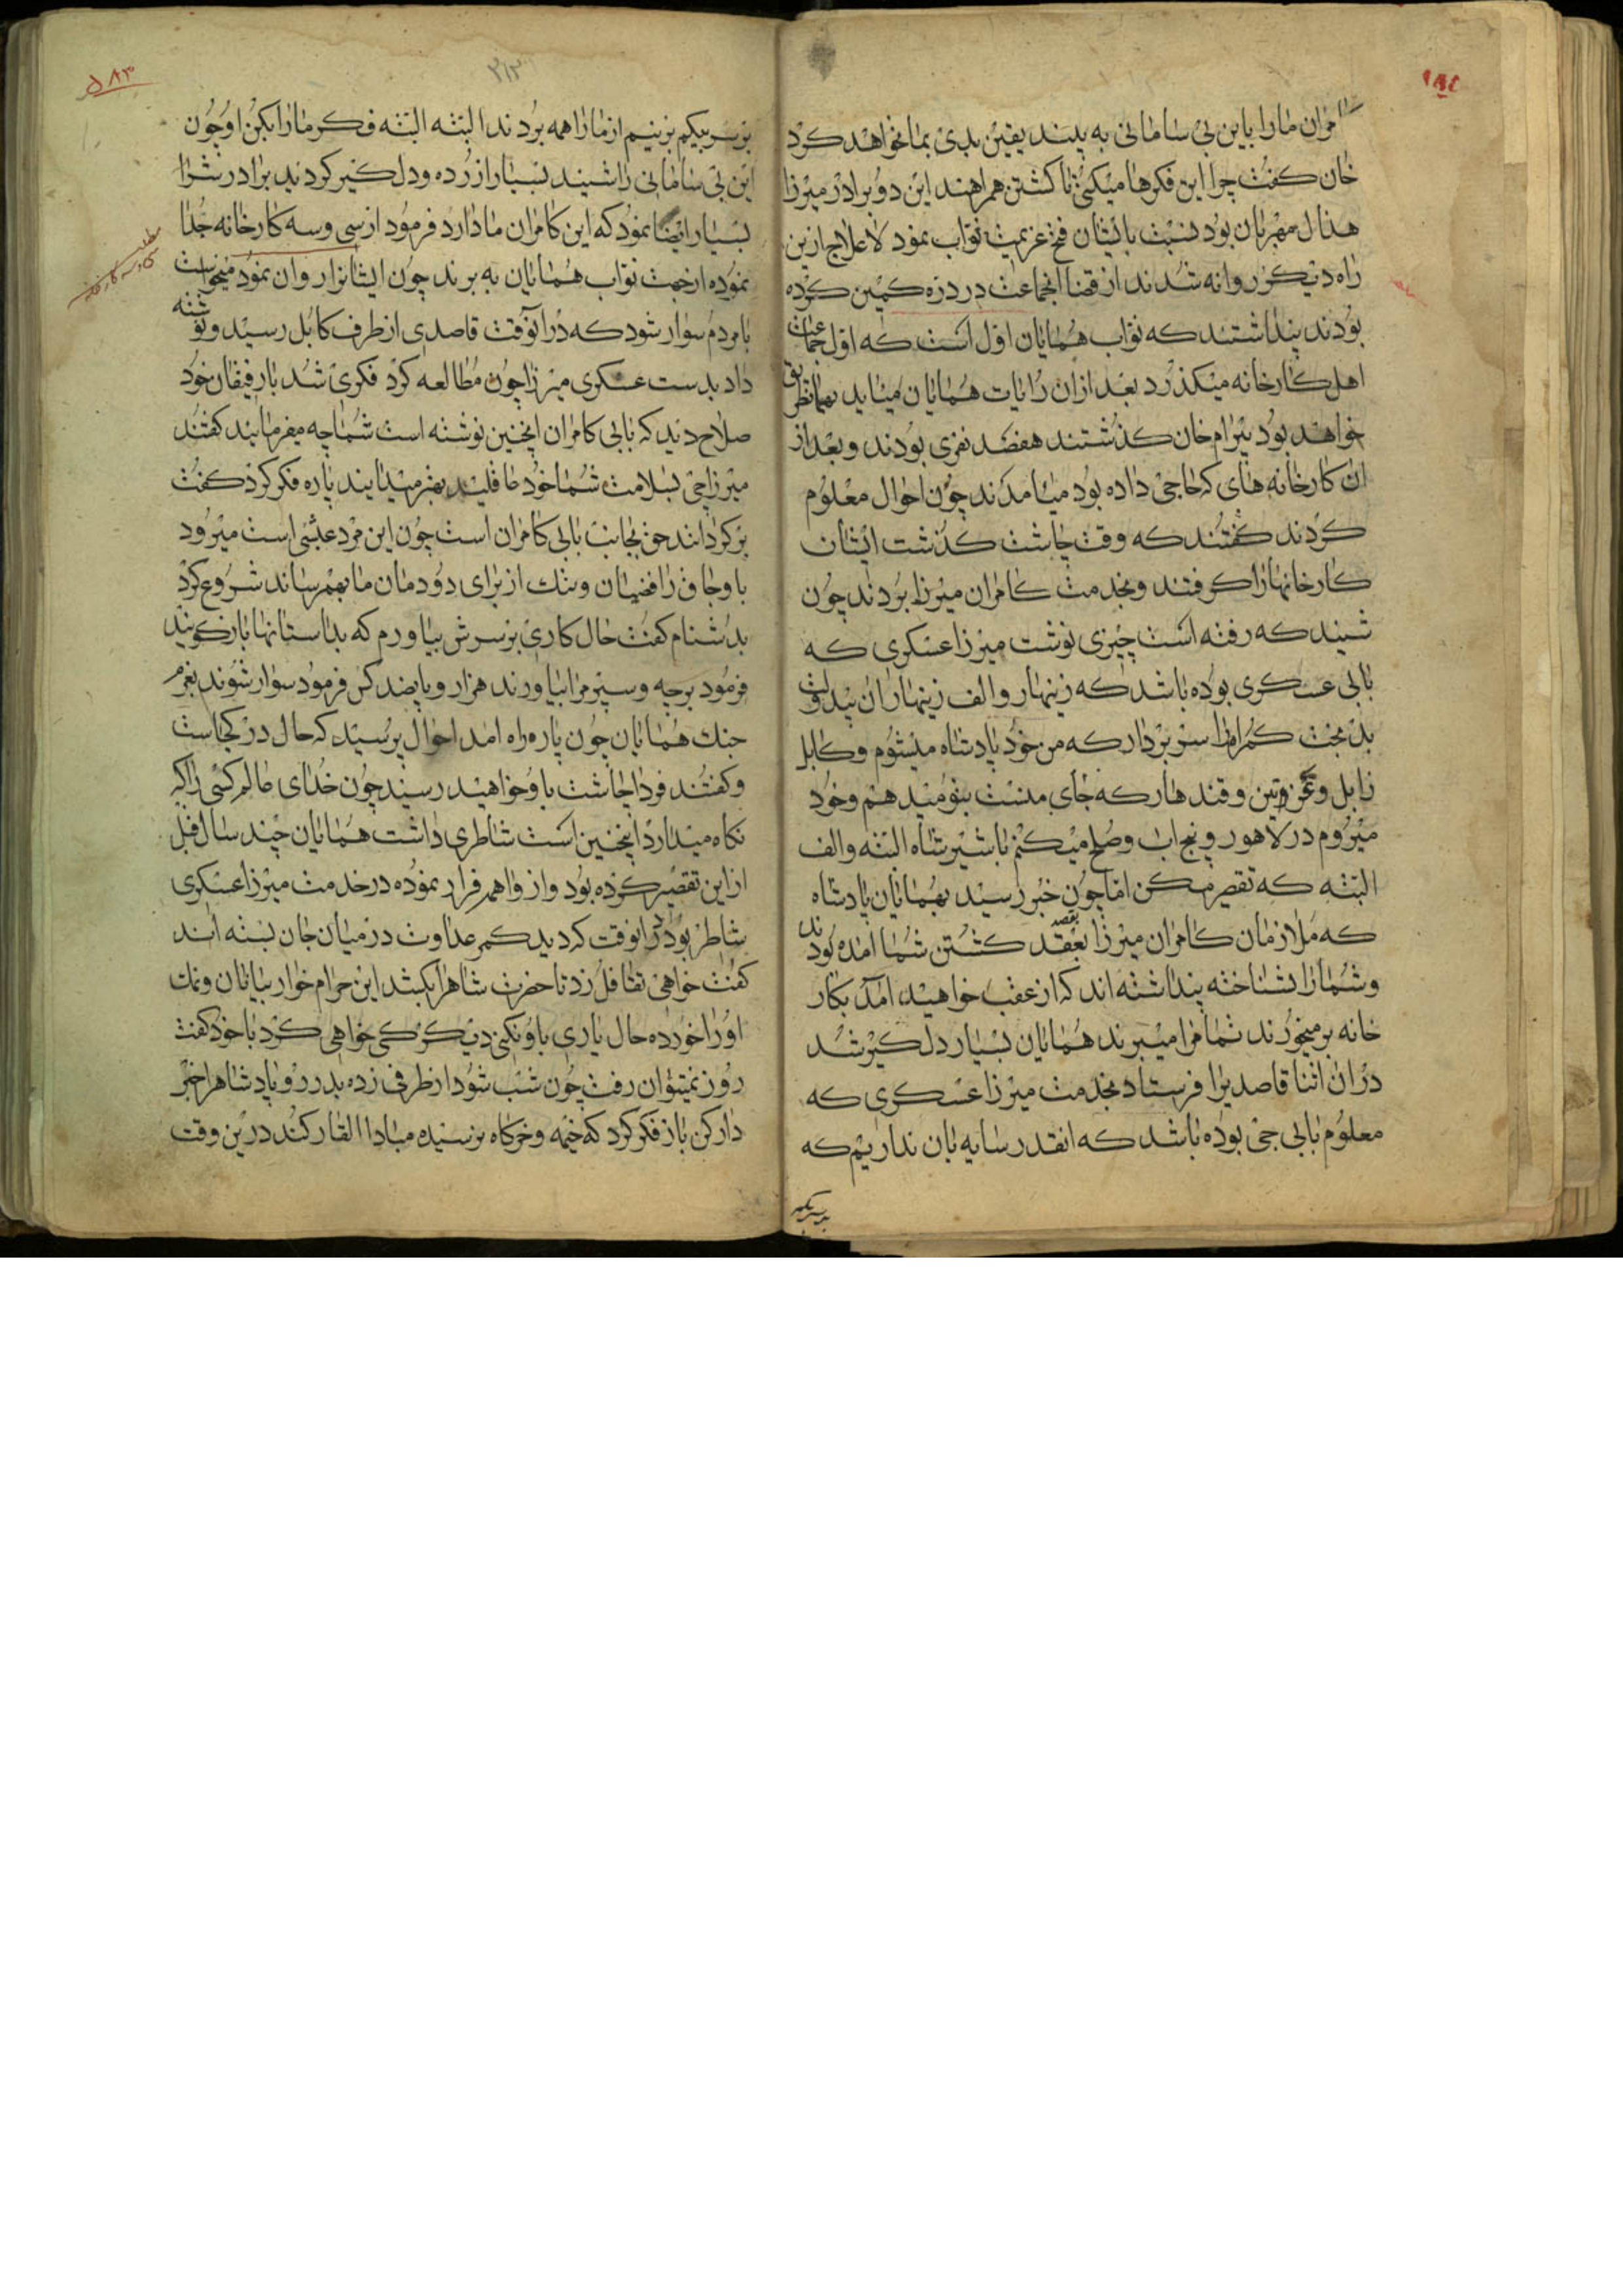 کامران ما را باین بی سامانی به بیند یقین بدی بما خواهد کرد
خان کفت چرا این فکرها میکنی تا کشتن همراهند این دو برادر میرزا
هندال مهربان بود نسبت بایشان فسخ عزیمت نواب نمود لاعلاج ازین
راه دیکر روانه شدند از قضا انجماعت در دره کمین کرده
بودند پنداشتند که نواب همایان اول است که اول جماعت
اهل کارخانه میکذرد بعد ازان رایات همایان میاید بهمانطریق
خواهد بود بیرام خان کذشتند هفصد نفری بودند و بعد از
ان کارخانه های که حاجی داده بود میامدند چون احوال معلوم
کردند کفتند که وقت چاشت کذشت ایشان
کارخانها را کرفتند و بخدمت کامران میرزا بردند چون
شنید که رفته است چیزی نوشت میرزا عسکری که
بابی عسکری بوده باشد که زینهار و الف زینهار ان بیدولت
بد بخت کمراه را سر بردار که من خود پادشاه میشوم و کابل
زابل و غزنین و قندهار که جای منست بتو میدهم و خود
میروم در لاهور و پنجاب و صلح میکنم با شیر شاه البته و الف
البته که تقصیر مکن اما چون خبر رسید بهمایان پادشاه
که ملازمان کامران میرزا بعقد بقصد کشتن شما امده بودند
و شما را نشناخته پنداشته اند که از عقب خواهید امد بکار
خانه بر میخورند تمام را میبرند همایان بسیار دلکیر شد
دران اثنا قاصدیرا فرستاد بخدمت میرزا عسکری که
معلوم بابی جی بوده باشد که انقدر سایه بان نداریم که
بر سر بیکم
۵۸۳
۳۱۳
بر سر بیکم بزنیم از ما را همه بردند البته البته فکر ما را بکن او چون
این بی سامانی را شنید بسیار ازرده و دل کیر کردید برادرش را
بسیار ایضا نمود که این کامران ما دارد فرمود از سی و سه کارخانه جدا
نموده از جهت نواب همایان به برند چون ایشانرا روان نمود میخواست
با مردم سوار شود که درانوقت قاصدی از طرف کابل رسید و نوشته
داد بدست عسکری میرزا چون مطالعه کرد فکری شد با رفیقان خود
صلاح دید که بابی کامران اینچنین نوشته است شما چه میفرمایید کفتند
میرزا جی بسلامت شما خود عاقلید بهتر میدانید پاره فکر کرد کفت
برکردانند حق بجانب بابی کامران است چون این مرد عبثی است میرود
با و جاق رافضیان و ننک از برای دودمان ما بهم رساند شروع کرد
بدشنام کفت حال کاری بر سرش بیاورم که بداستانها باز کویند
فرمود برچه و سپر مرا بیاورند هزار و پانصد کس فرمود سوار شوند بعزم
جنک همایان چون پاره راه امد احوال پرسید که حال در کجاست
و کفتند فردا چاشت باو خواهید رسید چون خدای عالم کسی را که
نکاه میدارد اینچنین است شاطری داشت همایان چند سال قبل
از این تقصیر کرده بود و از واهمه فرار نموده در خدمت میرزا عسکری
شاطر بود درانوقت که دید کمر عداوت در میان جان بسته اند
کفت خواهی تغافل زد تا حضرت شاه را بکشد این حرام خوار بیابان و نمک
او را خورده حال یاری باو نکنی دیکر کی خواهی کرد با خود کفت
روز نمیتوان رفت چون شب شود از طرفی زده بدر رو و پادشاه را خبر
دار کن باز فکر کرد که خیمه و خرکاه نرسیده مبادا القار کند در این وقت